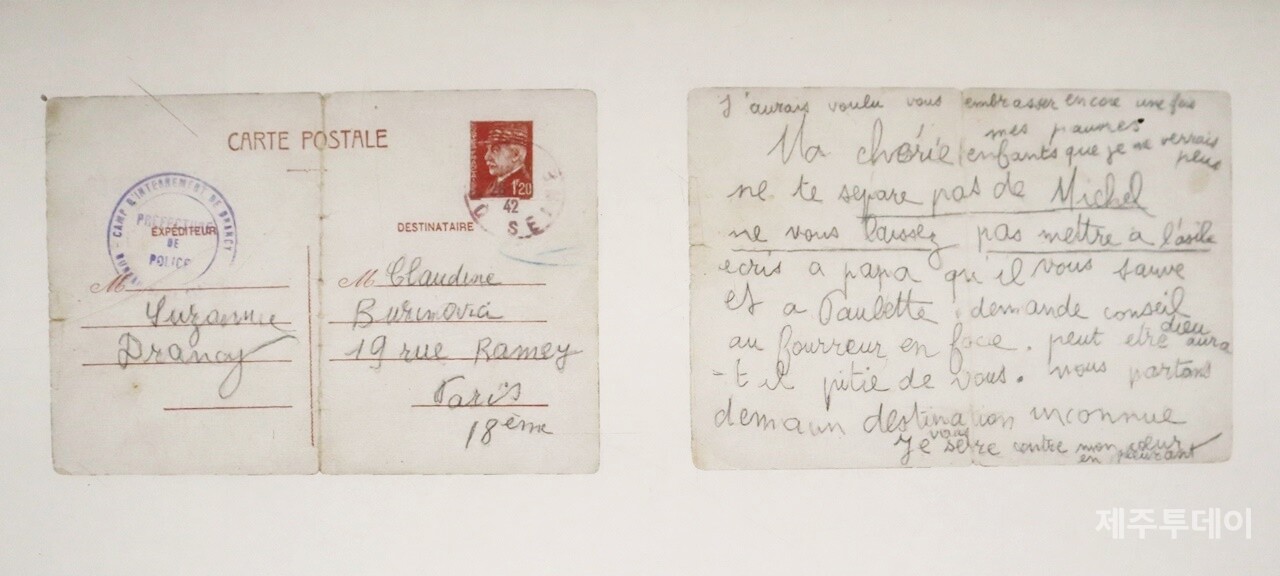 CARTE POSTALE
CAMP D'INTERNEMENT DE DRANCY
PRÉFECTURE
DE
POLICE
EXPÉDITEUR
M
Suzanne
Drancy
1F20
42
SEINE
DESTINATAIRE
M Claudine
Burinovici
19 rue Ramey
Paris
18ème
J'aurais voulu vous embrasser encore une fois
mes pauvres
Ma chérie enfants que je ne verrais
peus
ne te separe pas de Michel
ne vous laissez pas mettre a l'asile
ecris a papa qu'il vous sauve
et a Paulette. demande conseil
au fourreur en face. peut etre dieu aura
-t il pitie de vous. nous partons
demain destination inconnue
Je vous serre contre mon cœur
en pleurant
제주투데이